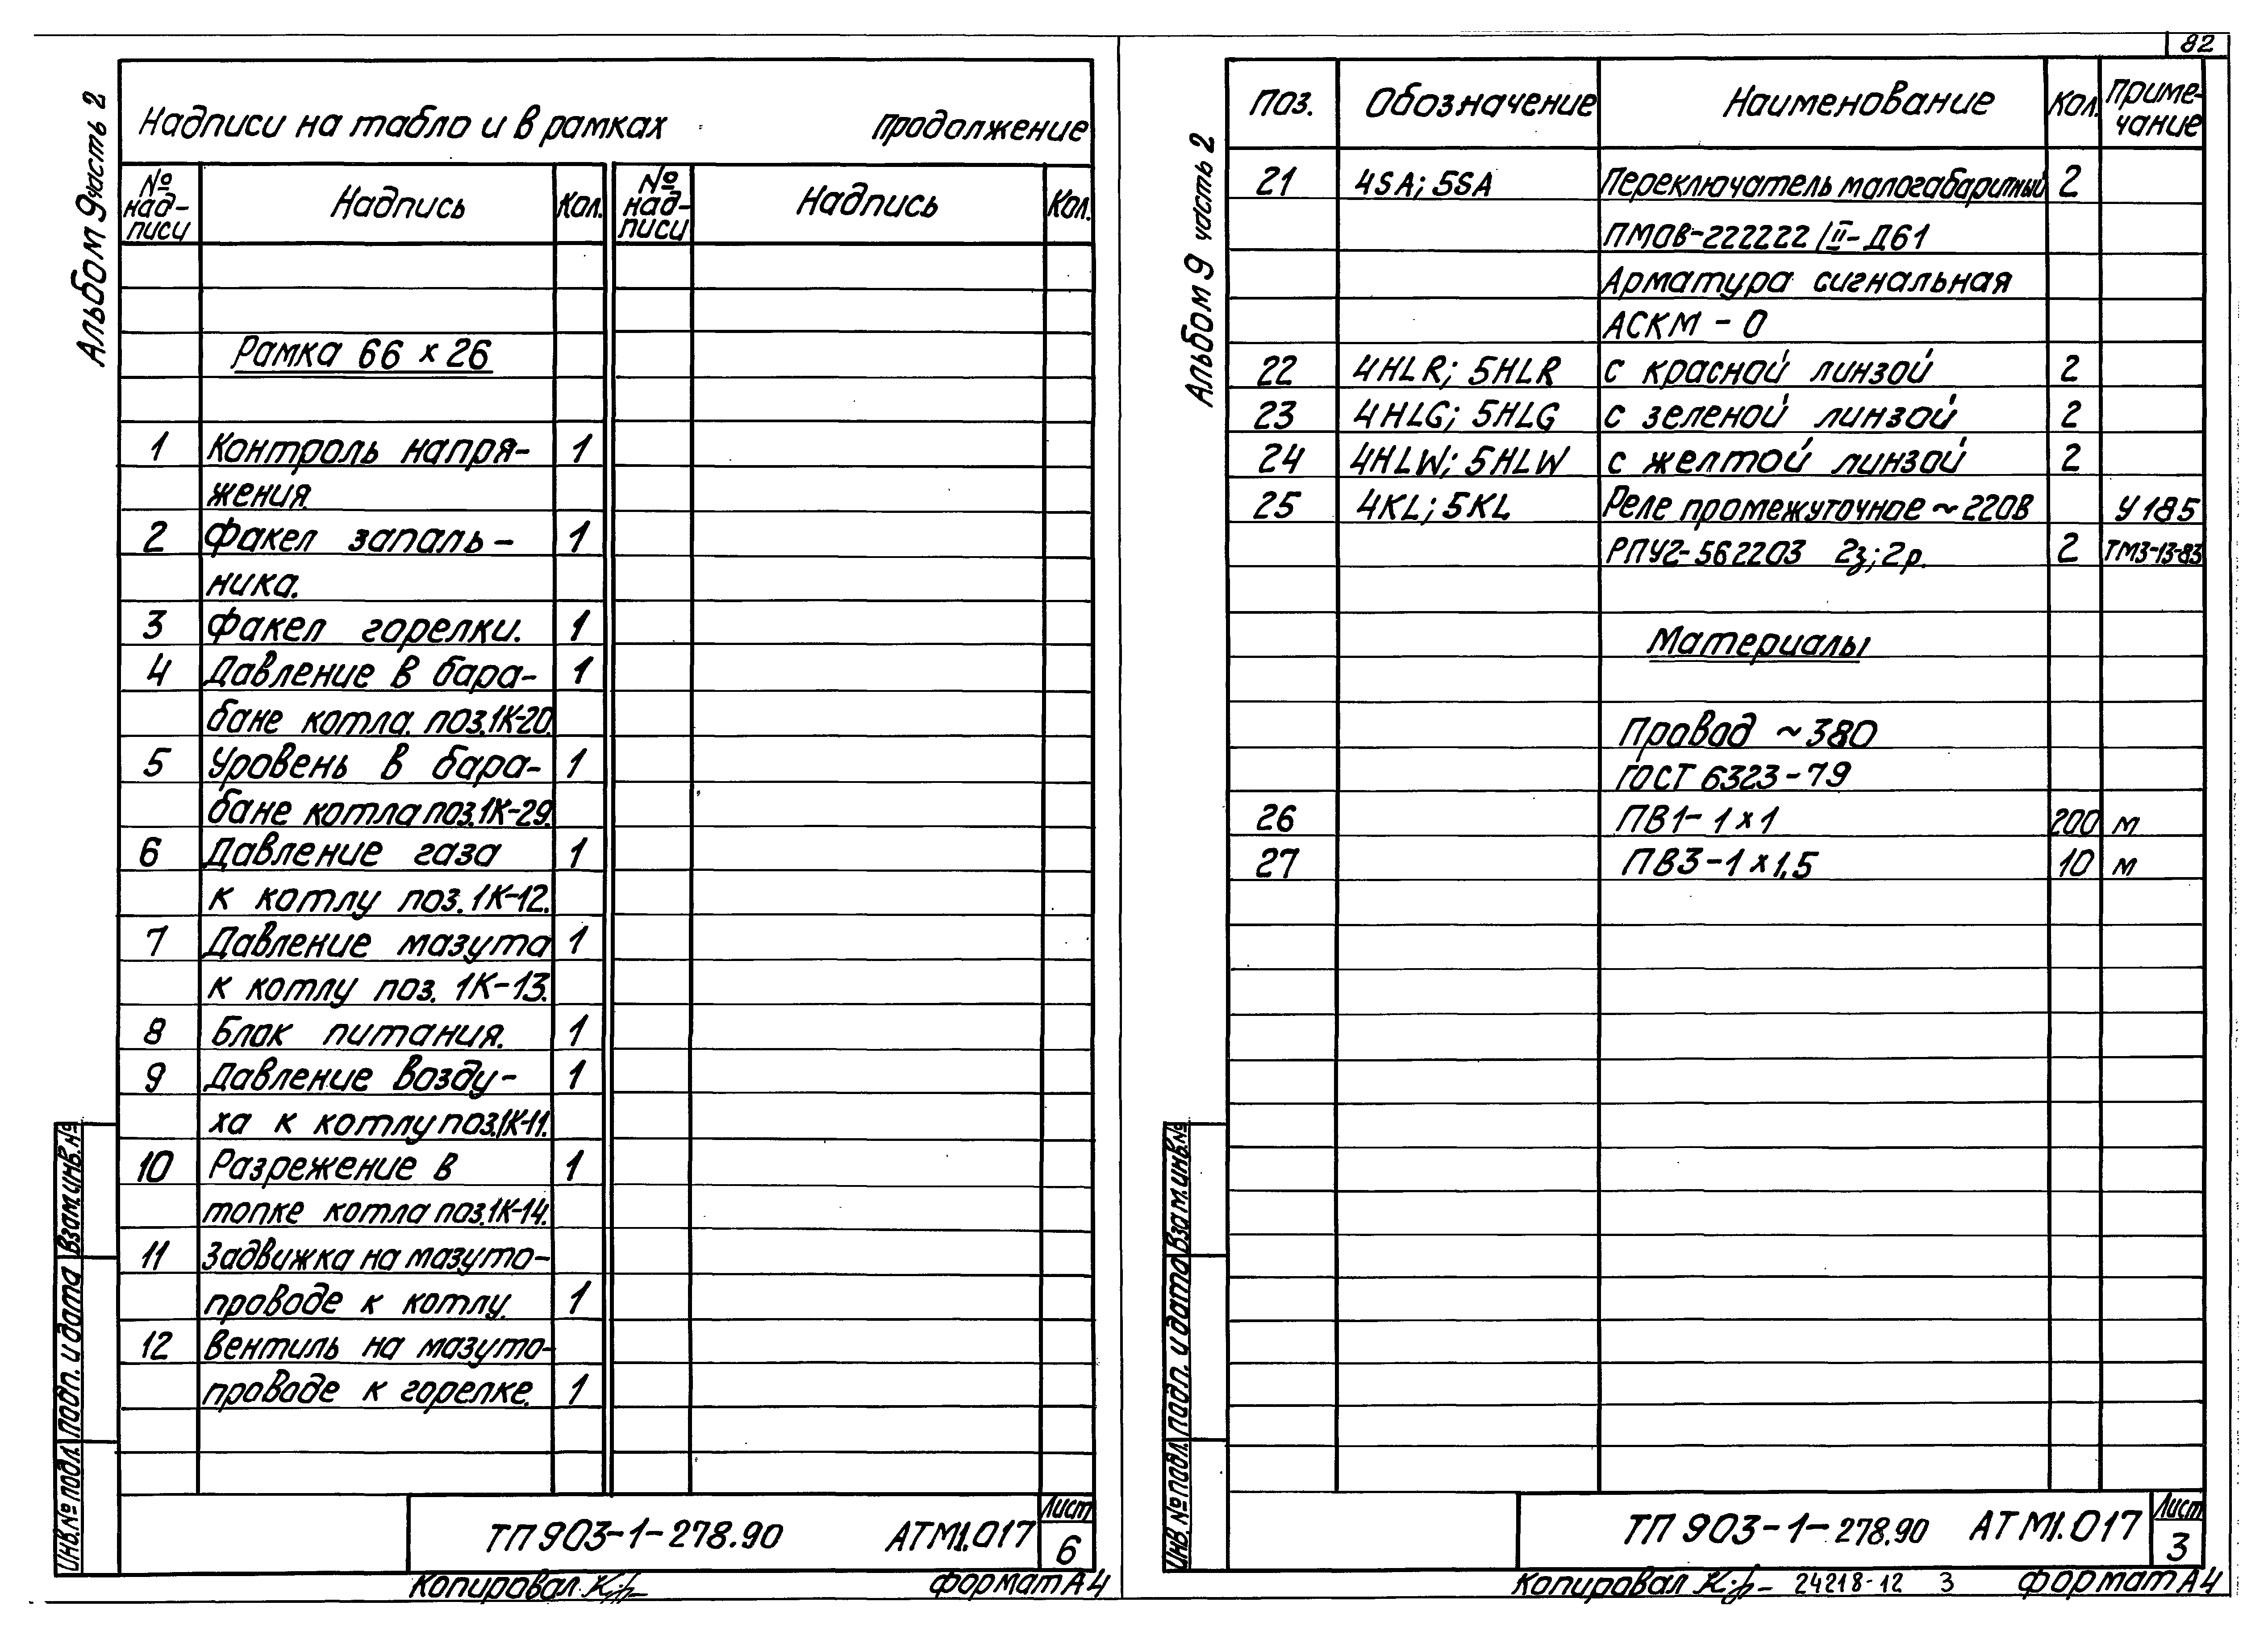 82
Альбом 9 часть 2
Надписи на табло и в рамках продолжение
№ над- писи Надпись Кол. № над- писи Надпись Кол.
Рамка 66 х 26
1 Контроль напря- 1
жения.
2 Факел запаль- 1
ника.
3 Факел горелки. 1
4 Давление в бара- 1
бане котла поз.1К-20.
5 Уровень в бара- 1
бане котла поз.1К-29.
6 Давление газа 1
к котлу поз.1К-12.
7 Давление мазута 1
к котлу поз. 1К-13.
8 Блок питания. 1
9 Давление возду- 1
ха к котлу поз.1К-11.
10 Разрежение в 1
топке котла поз.1К-14.
11 Задвижка на мазуто-
проводе к котлу. 1
12 Вентиль на мазуто-
проводе к горелке. 1
Инв.№ подл. Подп. и дата Взам.инв.№
ТП 903-1-278.90 АТМ1.017 Лист 6
Копировал Формат А4
Альбом 9 часть 2
Поз. Обозначение Наименование Кол. Приме- чание
21 4SA; 5SA Переключатель малогабаритный 2
ПМОВ-222222/II-Д61
Арматура сигнальная
АСКМ - 0
22 4HLR; 5HLR с красной линзой 2
23 4HLG; 5HLG с зеленой линзой 2
24 4HLW; 5HLW с желтой линзой 2
25 4KL; 5KL Реле промежуточное ~220В У185
РПУ2-562203 2з; 2р. 2 ТМ3-13-83
Материалы
Провод ~380
ГОСТ 6323-79
26 ПВ1- 1х1 200 м
27 ПВ3-1х1,5 10 м
Инв.№ подл. Подп. и дата Взам.инв.№
ТП 903-1-278.90 АТМ1.017 Лист 3
Копировал 24218-12 3 Формат А4